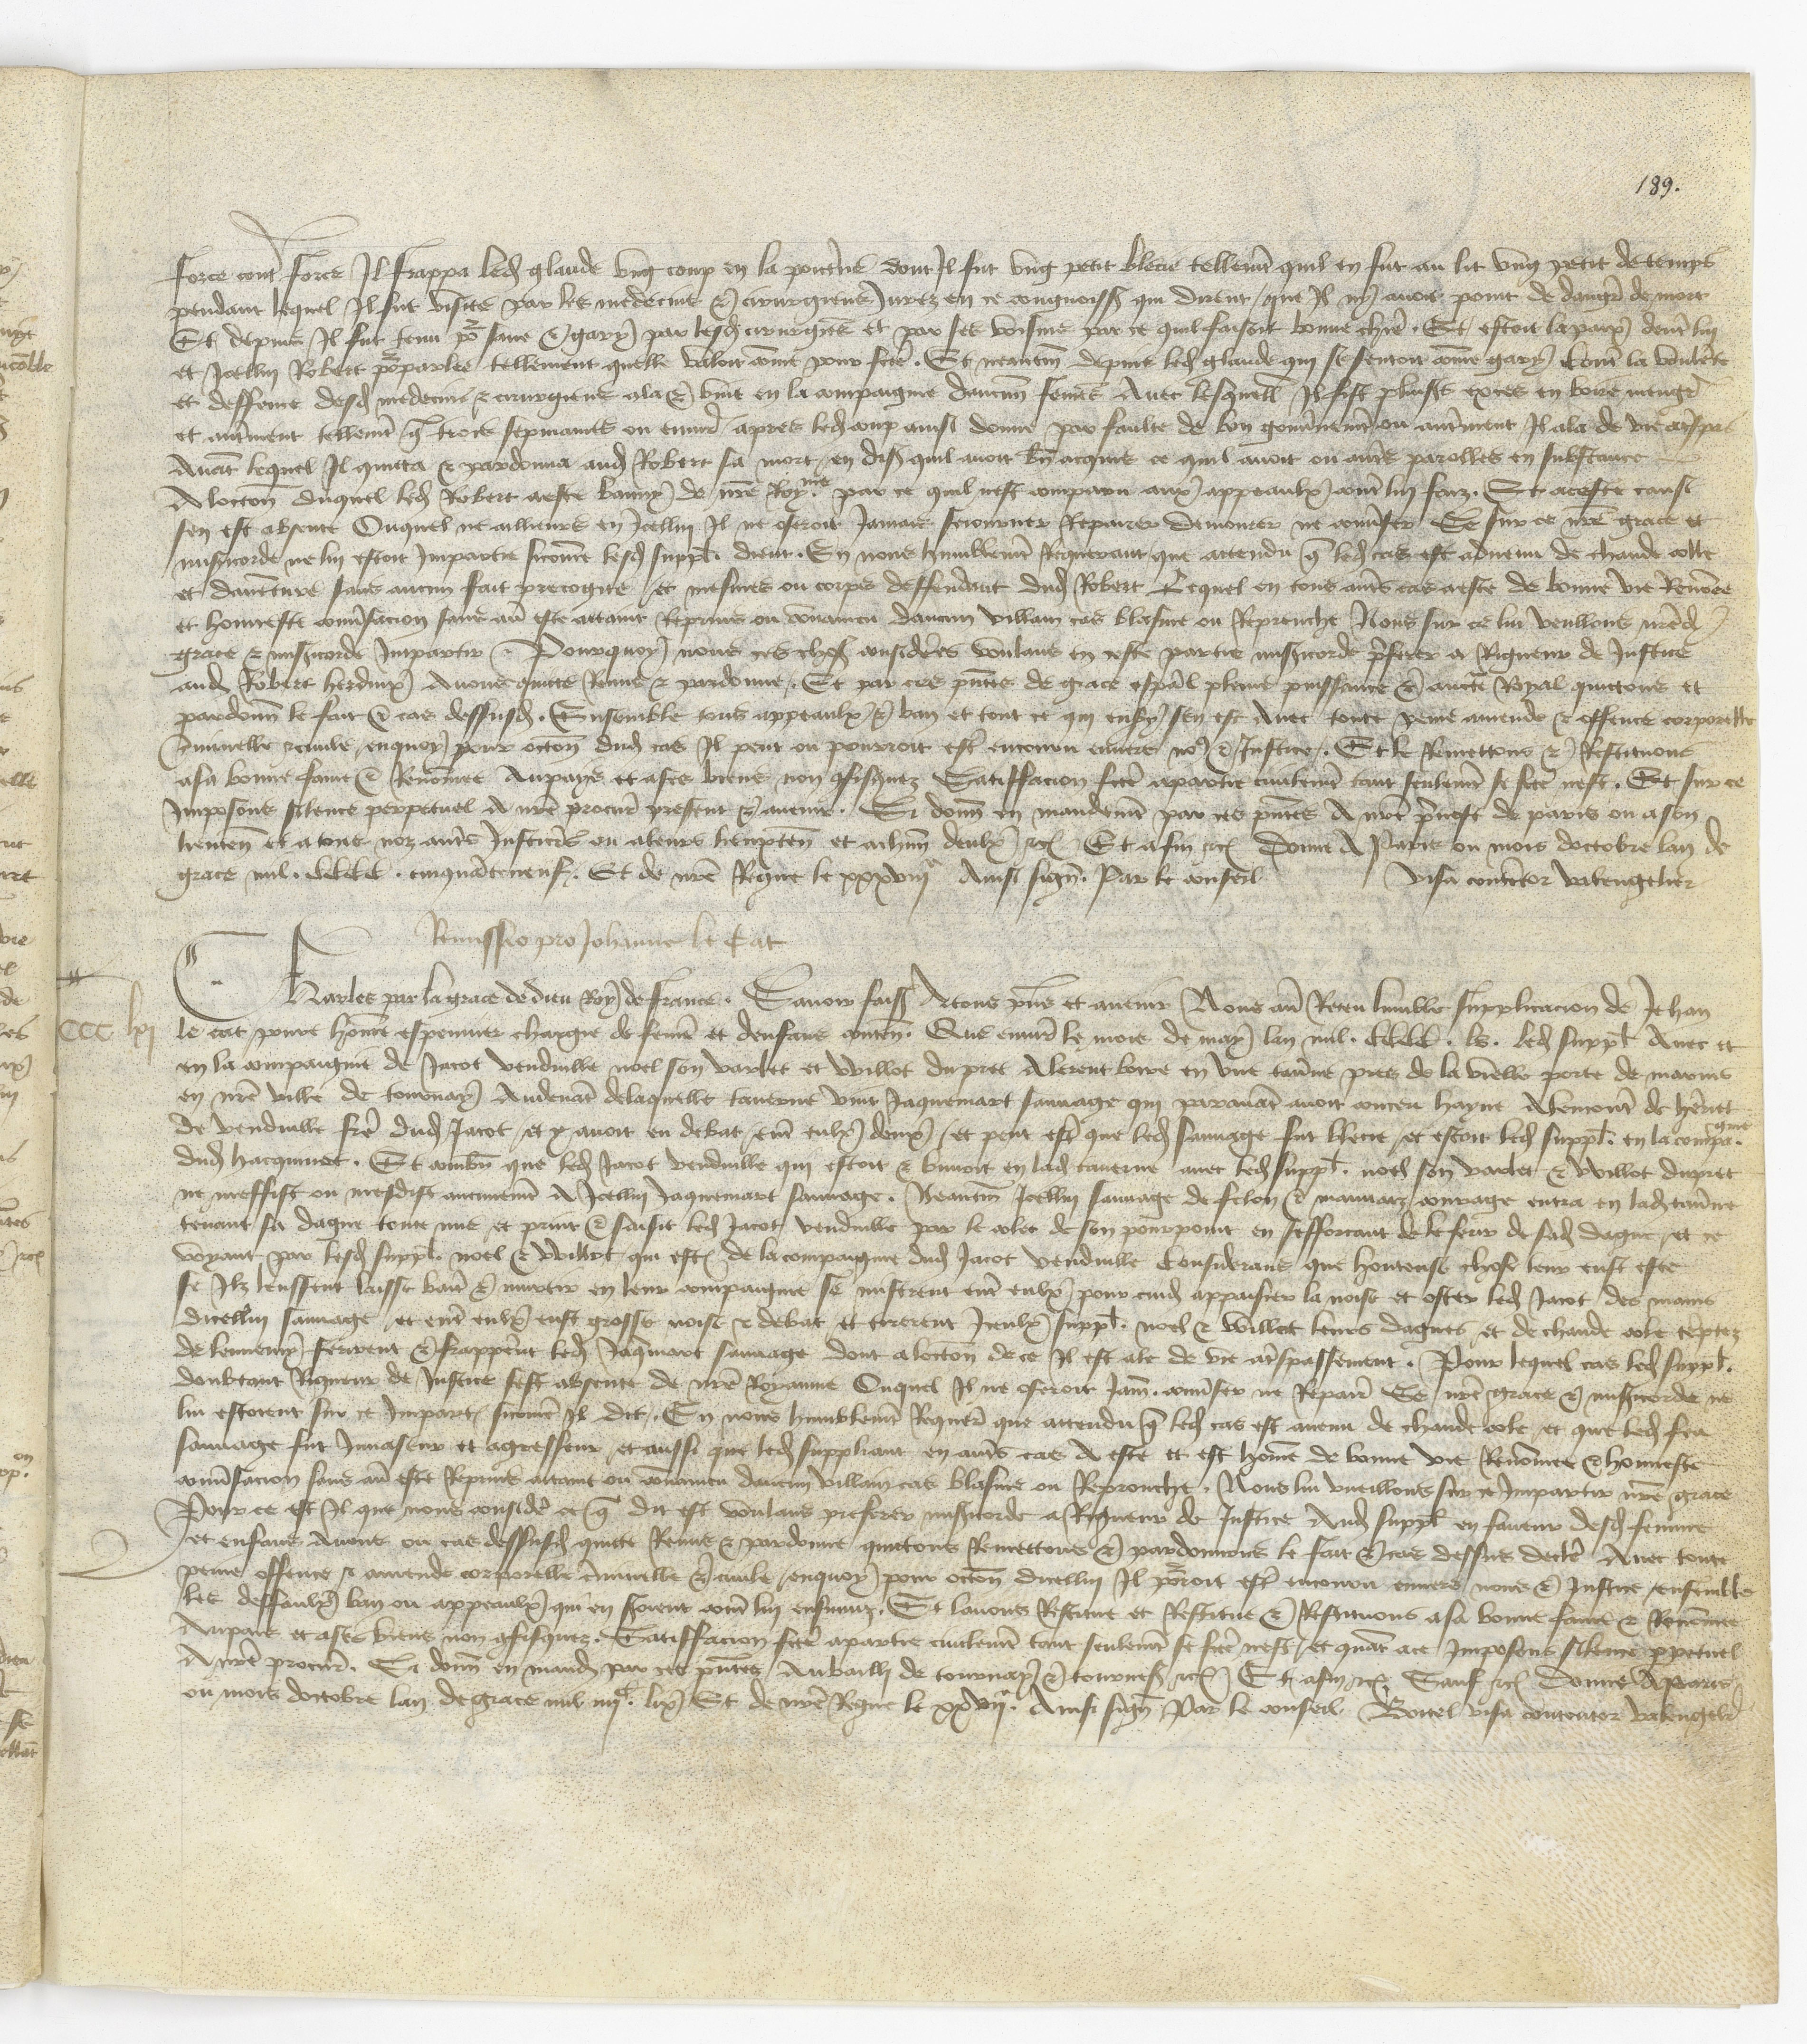 189.
Force cont' Force Il frappa led' glaude ung coup en la poictrine dont Il fut ung petit blecie tellemt quil en fut au lit ung petit de temps
pendant lequel Il fut visite par les medecins & cirurgiens Jurez en ce congnoiss' qui dirent que Il ny avoit point de dangr de mort
Et depuis Il fut tenu por sane & gary par lesd' cirurgiens et par ses voisins par ce quil faisoit bonne chiere . Et estoit la paix dentr lui
et Icellui Robert porparlee tellement quelle valoit comme pour faicte . Et neantm' depuis led' glaude qui se sentoit comme gary contr la voulente
et deffence desd' medecins & cirurgiens ala & vint en la compaignie daucun' femes Avec lesquell' Il fist plus's exces en boire mengr
et autrment tellemt q trois sepmaines ou envir' apres led' coup ainsi donne par faulte de bon gouvnemt ou autrment Il ala de vie a trespas
Avat lequel Il quicta & pardonna aud' Robert sa mort en dis' quil avoit bn acquis ce quil avoit ou autrs parolles en substance
A loccon duquel led' Robert a este banny de nre Royme par ce quil nest comparu aux appeaulx contr lui faiz . Et a ceste cause
sen est absente Ouquel ne ailleurs en Icellui Il ne oseroit Jamais seiourner Reparer demourer ne converser Se sur ce nre grace et
misericorde ne lui estoit Impartie sicome lesd' suppl. dient . En nous humblemt Requerant que attendu q led' cas est advenu de chaude colle
et daventure sans aucun fait precogite et mesmes ou corps deffendant dud' Robert Lequel en tous autrs cas a este de bonne vie Renomee
et honneste conv'sacion sans avr este attaint Reprins ou convaincu daucun villain cas blasme ou Reprouche Nous sur ce lui vueillons nred'
grace & misericorde Impartir . Pourquoy nous ces chos' considerees voulans en ceste partie misericorde preferer a Rigueur de Justice
aud' Robert herdinx Avons quicte Remis & pardonne . Et par ces pntes de grace espal pleine puissance & aucte Royal quictons et
pardonn' le fait & cas dessusd' . Ensemble tous appeaulx & ban et tout ce qui ensuy sen est Avec toute peine amende & offence corporelle
criminelle & civile enquoy pour occon dud' cas Il peut ou pourroit estr encouru envers no' & Justice . Et le Remettons & Restituons
a sa bonne fame & Renommee Au pays et a ses biens non ofisquez Satisfacion faicte a partie civilemt tant seulemt se faicte nest . Et sur ce
Imposons silence perpetuel A nre procur' present & avenir . Si donn' en mandemt par ces pntes A nre prevost de paris ou a son
lieuten' et a tous noz autrs Justiciers ou a leurs lieuxten' et a chun deulx &c Et afin &c Donne A Paris ou mois doctobre lan de
grace mil . CCCC . cinquante neuf . Et de nre Regne le xxxviije Ainsi sign' . Par le conseil Visa contentor valengelier
Remissio pro Johanne le Cat
CCC lxj
Charles par la grace de dieu Roy de france . Savoir fais' A tous pns et avenir Nous avr Receu lumble supplicacion de Jehan
le cat povre homme espennier chargie de feme et denfans conten' . Que envir' le mois de may lan mil . CCCC . lv . led' suppl' Avec et
en la compaignie de Jacot vendville noel son varlet et Willot du pret Alerent boire en une taverne pres de la vielle porte de marvis
en nre ville de tournay Au devat de laquelle taverne vint Jaquemart sauvage qui paravat avoit conceu hayne A lencontr de henret
de vendville frere dud' Jacot et y avoit eu debat entr eulx deux et peut estr que led' sauvage fut blecie et estoit led' suppl . en la compaignie
dud' hacquinet . Et combn que led' Jacot vendville qui estoit & buvoit en lad' taverne avec led' suppl . noel son varlet & Willot du pret
ne meffist ou mesdist aucunemt A Icellui Jaquemart sauvage . Neantm' Icellui sauvage de felon & mauvaiz courage entra en lad' taverne
tenant sa dague toute nue et print & saisit led' Jacot vendville par le colet de son pourpoint en sefforcant de le ferir de sad' dague et ce
voyant par lesd' suppl . noel & Willot qui est' de la compaignie dud' Jacot vendville Considerans que honteuse chose leur eust este
se Ilz leussent laisse batr & murtrir en leur compaignie se misrent entr eulx pour cuid' appaisier la noise et oster led' Jacot des mains
dicellui sauvage et entr eulx eust grosse noise & debat et tirerent Iceulx suppl . noel & Willot leurs dagues et de chaude cole teptez
de lennemy ferirent & frapperent led' Jaqmart sauvage dont a loccon de ce Il est ale de vie a trespassement . Pour lequel cas led' suppl .
doubtant Rigueur de Justice sest absente de nre Royaume Ouquel Il ne oseroit Jam' . converser ne Repair' Se nre grace & misericorde ne
lui estoient sur ce Impart' sicome Il dit . En nous humblemt Requer' que attendu q led' cas est avenu de chaude cole et que led' feu
sauvage fut Invaseur et agresseur et aussi que led' suppliant en autrs cas A este et est homme de bonne vie Renomee & honneste
conv'sacion sans avr este Reprins attaint ou convaincu daucun villain cas blasme ou Reprouche . Nous lui vueillons sur ce Impartir nre grace
Pour ce est Il que nous consider' ce q dit est voulans preferer misericorde a Rigueur de Justice Aud' suppl' en faveur desd' femme
et enfans Avons ou cas dessusd' quicte Remis & pardonne quictons Remettons & pardonnons le fait & cas dessus declere Avec toute
peine offence & amende corporelle criminelle & civile enquoy pour occon dicellui Il porroit estr encouru envers nous & Justice ensemble
les deffaulx ban ou appeaulx qui en seroient contr lui ensuiviz . Et lavons Restitue et Restitue & Restituons a sa bonne fame & Renomee
Au pais et a ses biens non ofisquez . Satisfacion faicte a partie civilemt tant seulemt se faicte nest et quat a ce Imposons silence ppetuel
A nre procur' . Si donn' en mand' par ces pntes Au bailli de tournay & tournes' &c Et afin &c Sauf &c Donne A paris
ou mois doctobre lan de grace mil iiijc . lix Et de nre Regne le xxxviije . Ainsi sign' Par le conseil Boitel visa contentor valengelr